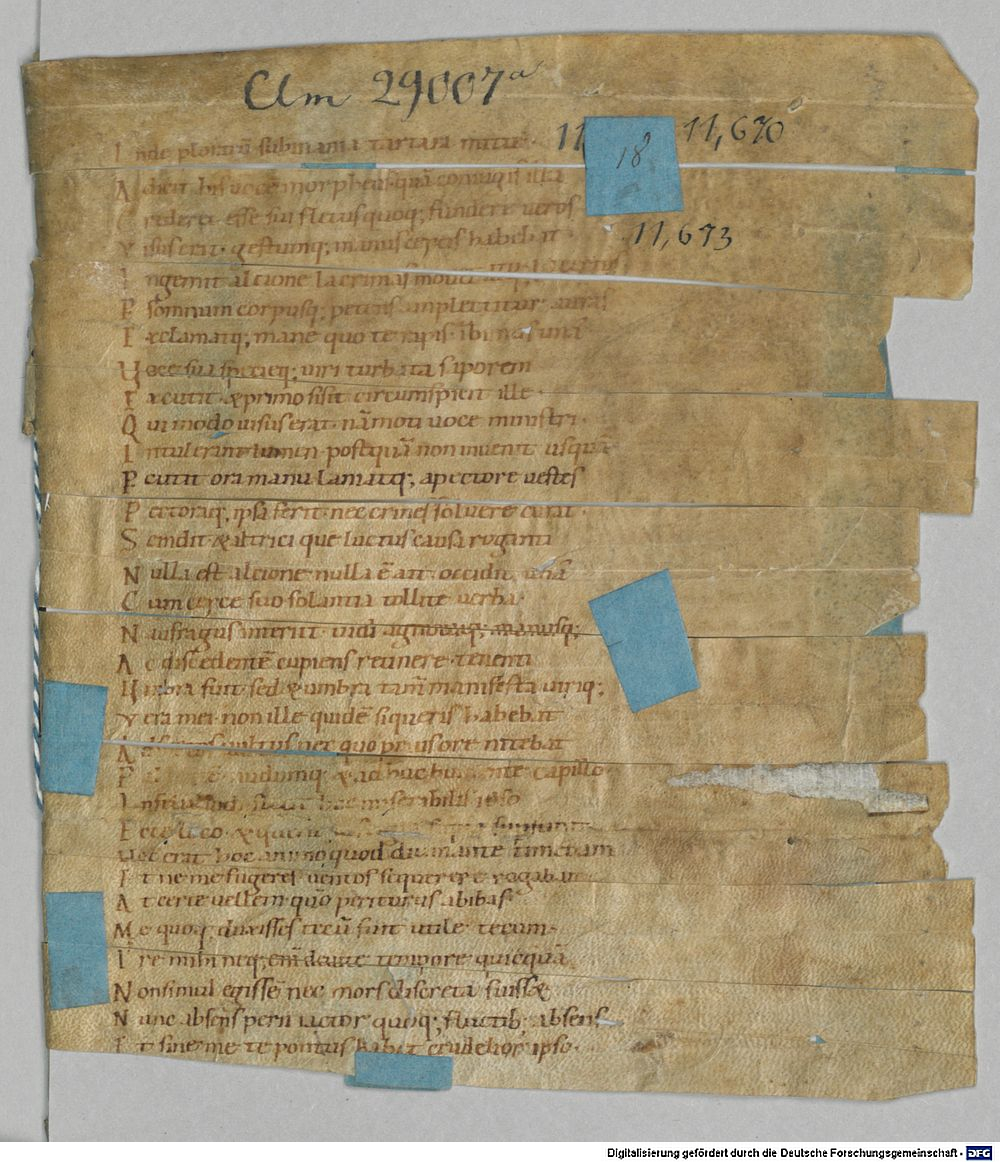 Clm 29007a
11, 670
18
11, 673
I nde ploratū sub inania tartara mitte·
A dicit his voce morpheus quā coniugis illa
C rederet esse sui fletus quoq; fundere veros
V isus erat· gestumq; manus ceycis habebat
I ngemit alcione lacrimas mouet atq; lacertos
P somnum corpusq; petens amplectitur auras
E xclamatq; mane quo te rapis· ibimus unā
V oce sua specieq; viri turbata soporem
E xcutit &primo si sit circumspicit ille·
Q ui modo visus erat· nā moti voce ministri·
I ntulerunt lumen· postquā non invenit usquā
P ercutit ora manu laniatq; apectore vestes
P ectoraq; ipsa ferit· nec crines soluere curat·
S cindit &altrici que luctus causa roganti
N ulla est alcione nulla ē ait· occidit unā
C um ceyce suo solantia tollite verba·
N aufragus interiit· vidi agnovique manusq;
A c discedentē cupiens retinere· tetendi
U mbra fuit sed &umbra tam̄ manifesta viriq;
V era mei· non ille quidē si queris habebat
A vultus nec quo prius ore nitebat
P nudumq; &ad huc humente capillo·
I hoc miserabilis ipso
E cce loco· &querit
H oc erat hoc animo quod divinante timebam
E t ne me fugeres ventos sequerere rogabam
A t certe vellem quō periturus abibas·
M e quoq; duxisses tecū fuit utile tecum·
I re mihi neq; eni de vite tempore quicquā
N on simul egissē nec mors discreta fuiss&
N unc absens perii iactor quoq; fluctib; absens
E t sine me te pontus habet crudelior ipso·
Digitalisierung gefördert durch die Deutsche Forschungsgemeinschaft - DFG